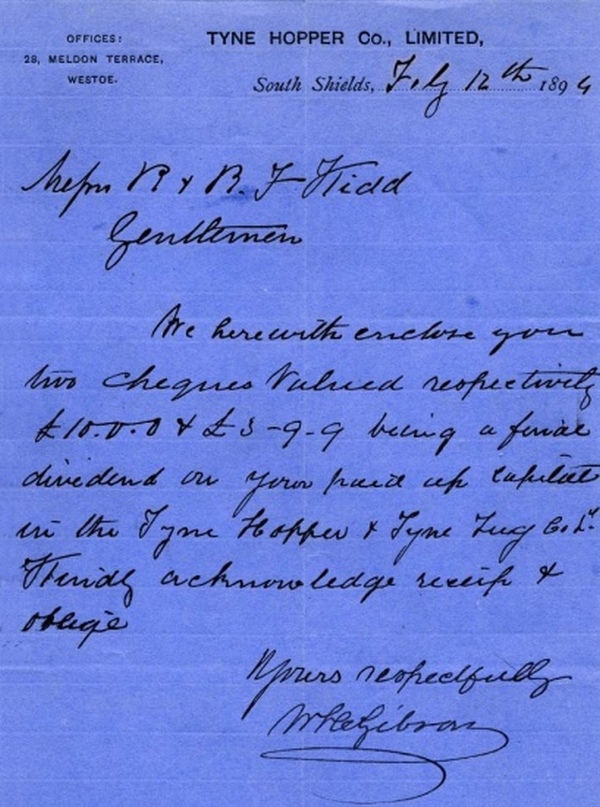 OFFICES:
28, MELDON TERRACE,
WESTOE.
TYNE HOPPER Co., LIMITED,
South Shields, Feby 12th 1894
Messrs R & R. F Kidd
Gentlemen
We herewith enclose you
two cheques Valued respectively
£10.0.0 & £3-9-9 being a final
dividend on your paid up capital
in the Tyne Hopper & Tyne Tug Co. Ld.
Kindly acknowledge receip &
oblige
Yours respectfully
Gibson